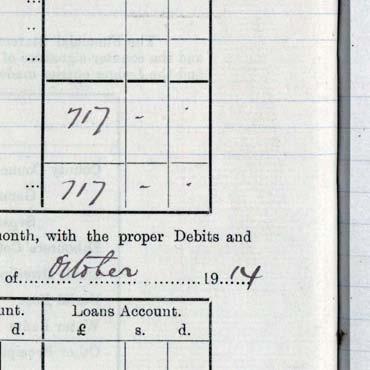 717 - -
... 717 - -
month, with the proper Debits and
of October 1914
unt. Loans Account.
d. £ s. d.